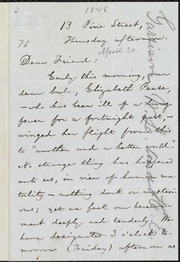 1848
13 Pine Street,
Thursday afternoon.
76
April 20.
Dear Friend:
Early this morning, our
dear babe, Elizabeth Pease,
who has been ill of a lung
fever for a fortnight past,
winged her flight from this
to "another and a better world."
No strange thing has happened
unto us, in view of human mor-
tality — nothing dark or myster-
ious; yet we feel our bereave-
ment deeply and tenderly. We
have designated 3 o'clock to-
morrow (Friday) afternoon as
Garrison